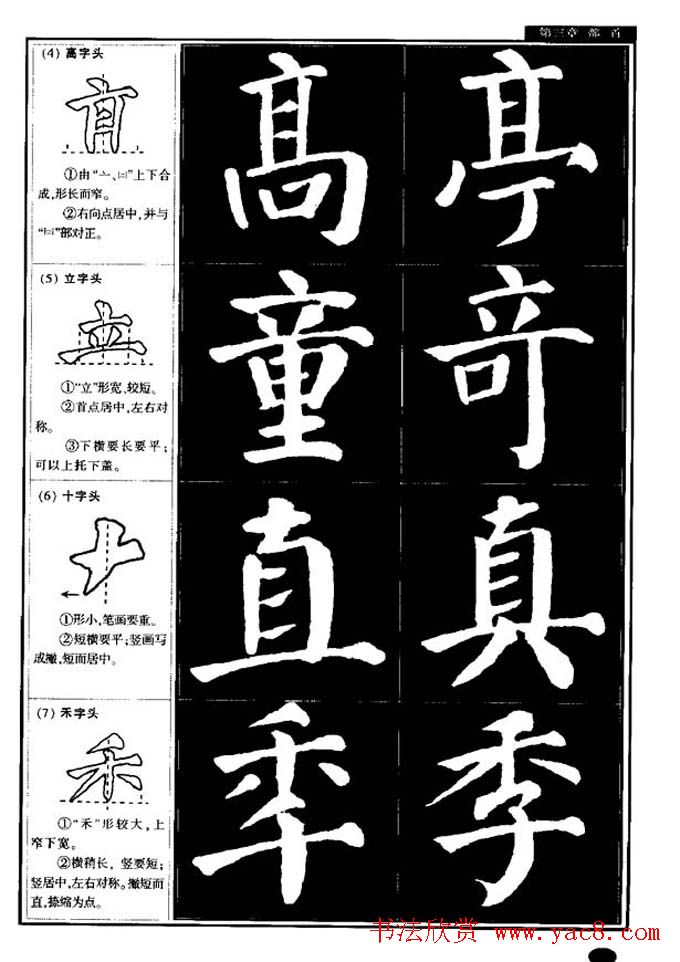 第三章 部 首
(4) 高字头
①由“亠、”上下合
成,形长而窄。
②右向点居中,并与
“”部对正。
髙 亭
(5) 立字头
①“立”形宽、较短。
②首点居中,左右对
称。
③下横要长要平;
可以上托下盖。
童 竒
(6) 十字头
①形小,笔画要重。
②短横要平;竖画写
成撇,短而居中。
直 真
(7) 禾字头
①“禾”形较大,上
窄下宽。
②横稍长,竖要短;
竖居中,左右对称。撇短而
直,捺缩为点。
秊 季
书法欣赏 www.yac8.com